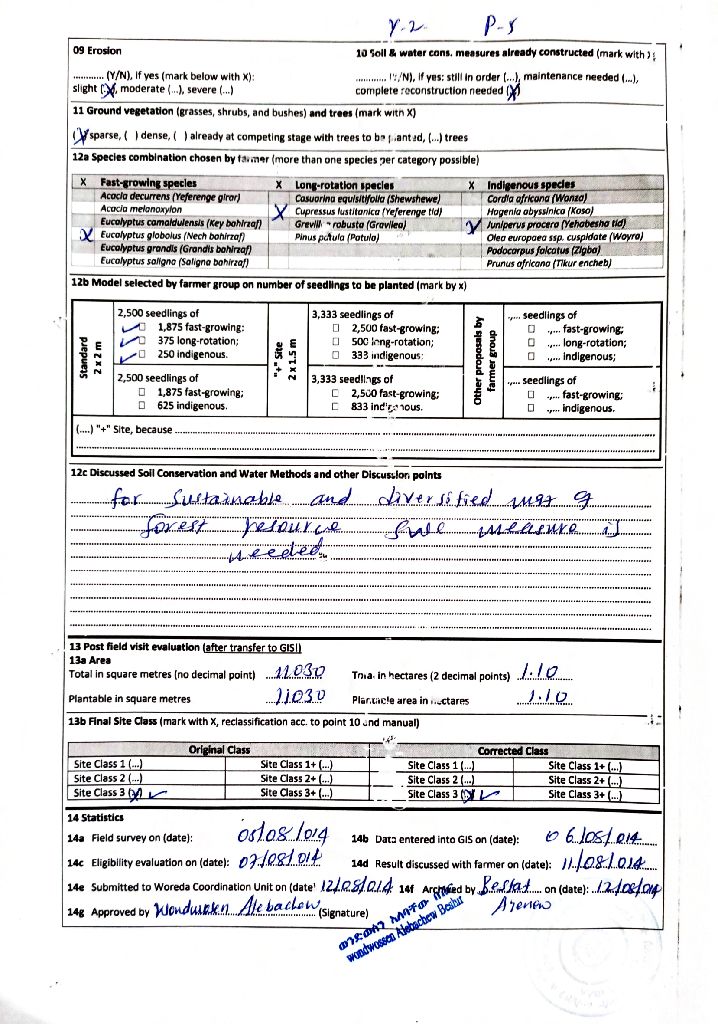 Y-2 P-5
09 Erosion
10 Soil & water cons. measures already constructed (mark with
............ (Y/N), if yes (mark below with X):
............ (Y/N), if yes: still in order (...), maintenance needed (...),
slight (X), moderate (...), severe (...)
complete reconstruction needed (X)
11 Ground vegetation (grasses, shrubs, and bushes) and trees (mark with X)
(X) sparse, ( ) dense, ( ) already at competing stage with trees to be planted, (...) trees
12a Species combination chosen by farmer (more than one species per category possible)
X Fast-growing species X Long-rotation species X Indigenous species
Acacia decurrens (Yeferenge girar) Casuarina equisitifolia (Shewshewe) Cordia africana (Wanza)
Acacia melanoxylon X Cupressus lustitanica (Yeferenge tid) Hagenia abyssinica (Koso)
Eucalyptus camaldulensis (Key bahirzaf) Grevillea robusta (Gravilea) X Juniperus procera (Yehabesha tid)
X Eucalyptus globolus (Nech bahirzaf) Pinus patula (Patula) Olea europaea ssp. cuspidate (Woyra)
Eucalyptus grandis (Grandis bahirzaf) Podocarpus falcatus (Zigba)
Eucalyptus saligna (Saligna bahirzaf) Prunus africana (Tikur encheb)
12b Model selected by farmer group on number of seedlings to be planted (mark by x)
Standard 2 x 2 m
2,500 seedlings of
✓ □ 1,875 fast-growing:
✓ □ 375 long-rotation;
✓ □ 250 indigenous.
2,500 seedlings of
□ 1,875 fast-growing;
□ 625 indigenous.
"+" Site 2 x 1.5 m
3,333 seedlings of
□ 2,500 fast-growing;
□ 500 long-rotation;
□ 333 indigenous:
3,333 seedlings of
□ 2,500 fast-growing;
□ 833 indigenous.
Other proposals by farmer group
.,... seedlings of
□ .,... fast-growing;
□ .,... long-rotation;
□ .,... indigenous;
.,... seedlings of
□ .,... fast-growing;
□ .,... indigenous.
(....) "+" Site, because
12c Discussed Soil Conservation and Water Methods and other Discussion points
for sustainable and diversified
forest resource measure is
needed.
13 Post field visit evaluation (after transfer to GIS!)
13a Area
Total in square metres (no decimal point) 11030 Total in hectares (2 decimal points) 1.10
Plantable in square metres 11030 Plantable area in hectares 1.10
13b Final Site Class (mark with X, reclassification acc. to point 10 and manual)
Original Class Corrected Class
Site Class 1 (...) Site Class 1+ (...) Site Class 1 (...) Site Class 1+ (...)
Site Class 2 (...) Site Class 2+ (...) Site Class 2 (...) Site Class 2+ (...)
Site Class 3 (X) ✓ Site Class 3+ (...) Site Class 3 (X) ✓ Site Class 3+ (...)
14 Statistics
14a Field survey on (date): 05/08/014 14b Data entered into GIS on (date): 06/08/014
14c Eligibility evaluation on (date): 07/08/014 14d Result discussed with farmer on (date): 11/08/014
14e Submitted to Woreda Coordination Unit on (date) 12/08/014 14f Archived by Bestat on (date): 12/08/014
14g Approved by Wondwosen Alebachew (Signature) Ayenew
Wondwossen Alebachew Beshir